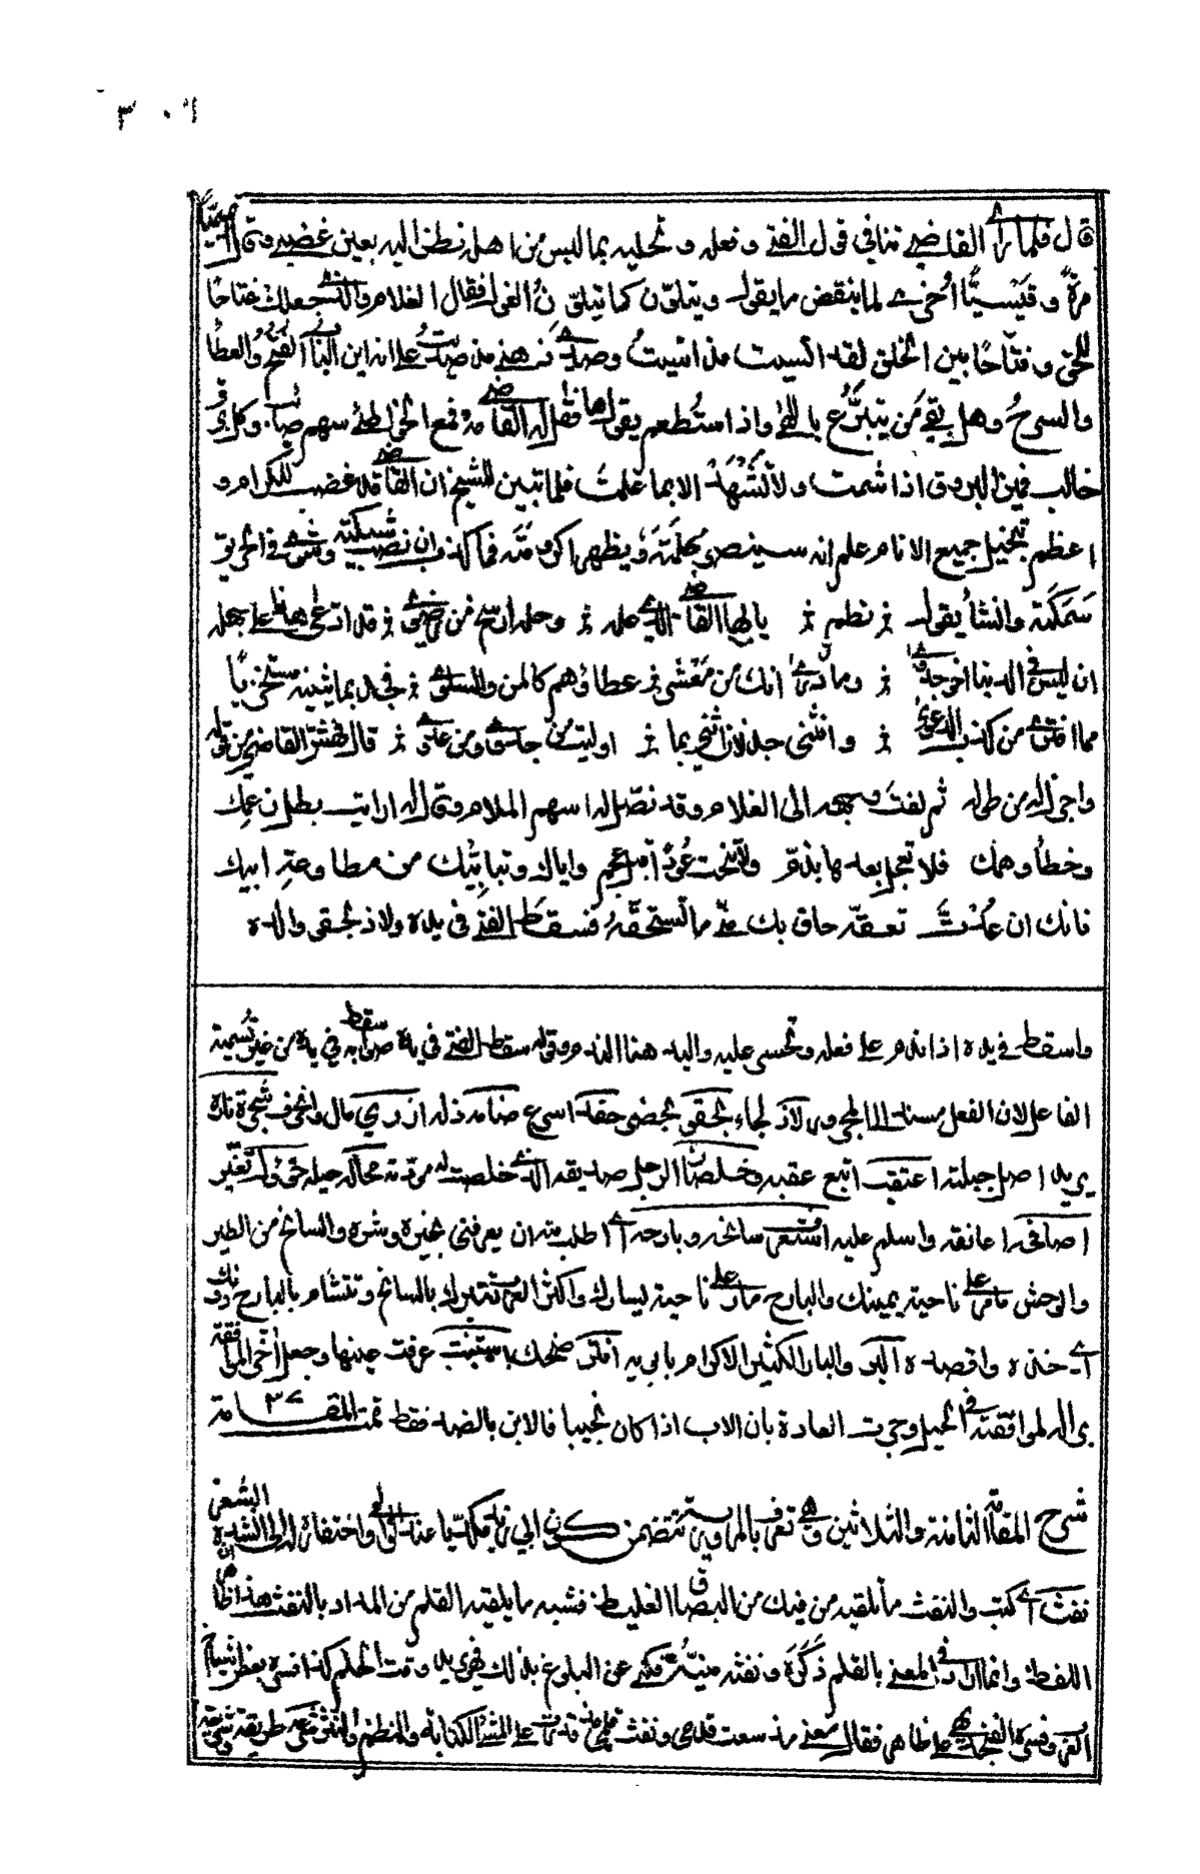 ٣٠٦
قال فلما رأى القاضي تنافي قول الفتى وفعله وتحليه بما ليس من اهله نظر اليه بعين غضبى وقال أتميميًّا
مرةً وقيسيًّا اُخرى اف لمن ينقض ما يقول ويتلوّن كما يتلوّن الغول فقال الغلام والذي جعلك مفتاحًا
للحق وفتّاحًا بين الخلق لقد اُنسيت مذ اسيتُ وصدئ ذهني مذ صديتُ على انه اين البابُ الفُتُحُ والعطاُ
والسرحُ وهل بقي مَن يتبرَّعُ باللُّهى واذا استُطعم يقول ها فقال له القاضي مه فمع الخواطئ سهم صائب وكل برق
خالب فميز البروق اذا شمت ولا تشهَد الا بما علمت فلما تبين للشيخ ان القاضي قد غضب للكرام و
اعظم تبخيل جميع الانام علم انه سينصر كلمتَه ويُظهر اكرومتَه فما كذب ان نصب شبكته وشوى في الحريق
سَمَكَته وانشأ يقول نظم يا ايها القاضي الذي علمه وحلمه ارسخ من رضوى قد ادعى هذا على جهله
ان ليس في الدنيا اخو جدوى وما درى انك من مَعشر عطاؤهم كالمن والسلوى فجد بما يثنيه مستخزيًا
مما افترى من كذب الدعوى وانثني جذلان اثني بما اوليت من جدوى ومن عدوى قال فهش القاضي من قوله
واجزل له من طوله ثم لفت وجهه الى الغلام وقد نصّل له اسهم الملام وقال له ارايت بطلان زعمك
وخطأ وهمك فلا تعجل بعدها بذمّ ولا تنحت عُودًا قبل عجم واياك وتأبيّك من مطاوعة ابيك
فانك ان عُدتَ تعقّه حاق بك منى ما تستحقّهُ فسقط الفتى في يده ولاذ بحقو والده
واسقط في يده اذا ندم على فعله وتحسر عليه واليد هنا الندم وقوله سقط الفتى في يده صوابه سقط في يده من غير تسمية
الفاعل لان الفعل مسند الى المجرور لاذ لجاء بحقو بخصر حفد اسرع ضامه ذله ازري مال وانحرف شجرة نك
يريد اصل جبلته اعتقب اتبع عقبه وخلصان الرجل صديقه الذي خلصت له مودته محاله حيله حتى ولا تغير
اصافحه اعانقه واسلم عليه استعرف سانحه وبارحه اي اطلب منه ان يعرفني بخيره وشره والسانح من الطير
والوحش ما مر على ناحية يمينك والبارح ما مر على ناحية يسارك واكثر العرب تتبرك بالسانح وتتشأم بالبارح دونك
اي خذه واقصده البر والبار الكثير الاكرام بابويه افتر ضحك استبنت عرفت عينها وجعل أخرى الموافقة
بوالده لموافقته في الحيل وجرت العادة بان الاب اذا كان نجيبا فالابن بالضد فقط تمت المقامة ٣٧
شرح المقامة الثامنة والثلاثين وهي تعرف بالمروية تتضمن كون ابي زيد مكديا عند الوالي واختفائه له الى انشده الشعر
نفث اي كتب والنفث ما تلقيه من فيك من البصاق الغليظ فشبه ما يلقيه القلم من المداد بالنفث هذا ظاهر
اللفظ وانما اراد في المعنى بالقلم ذَكَرَه ونفثه منيّه فكنى عن البلوغ بذلك فهو يريد وقت الحلم كذا فسره بعض اشياخ
العرب وفسره الفنجديهي على ظاهره فقال معنى مذ سعت قدمي ونفث قلمي مذ قدرت على المشي والكتابة والنظم والنثر شرعة طريقة نتيجة